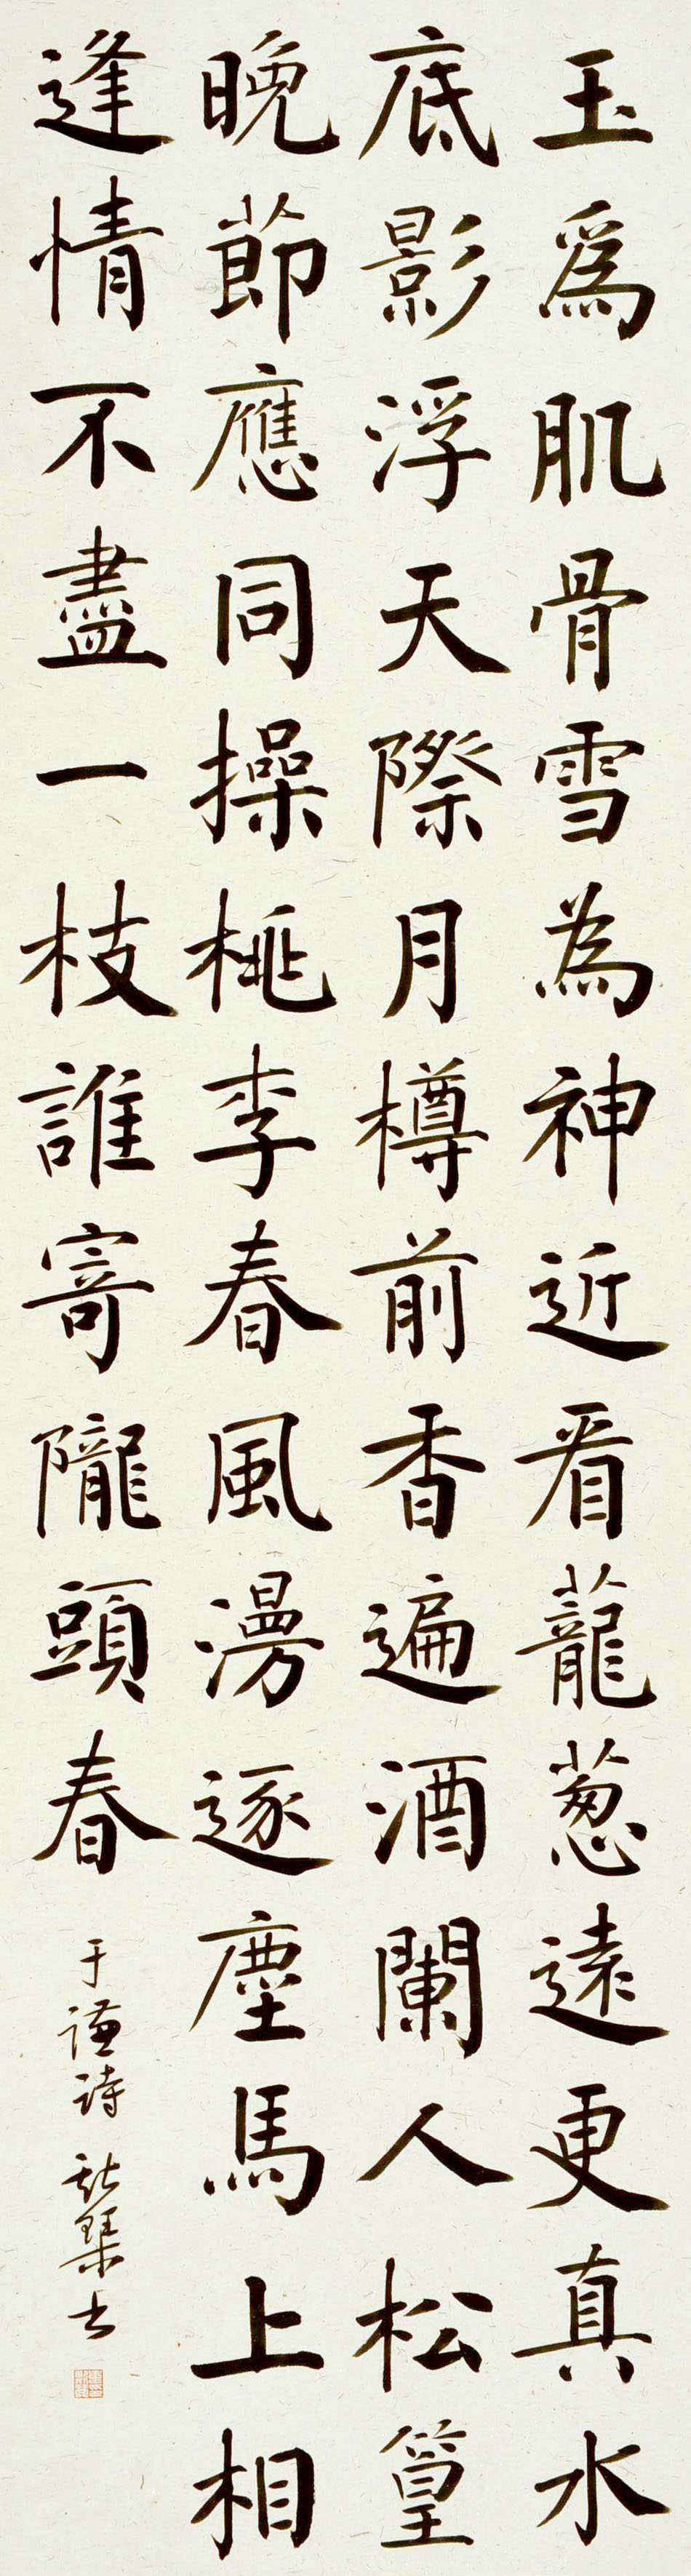 玉爲肌骨雪為神近看蘢葱遠更真水
底影浮天際月樽前香遍酒闌人松篁
晚節應同操桃李春風漫逐塵馬上相
逢情不盡一枝誰寄隴頭春
于謙詩